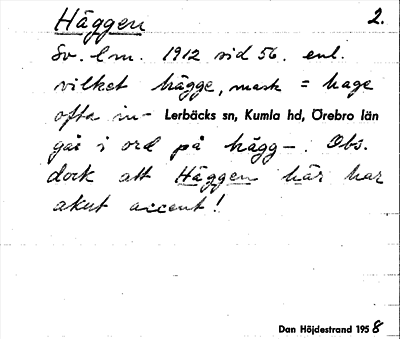 Häggen 2.
Sv. lm. 1912 sid 56. enl.
vilket hägge, mask = hage
ofta in- Lerbäcks sn, Kumla hd, Örebro län
går i ord på hägg-. Obs.
dock att Häggen här har
akut accent!
Dan Höjdestrand 1958